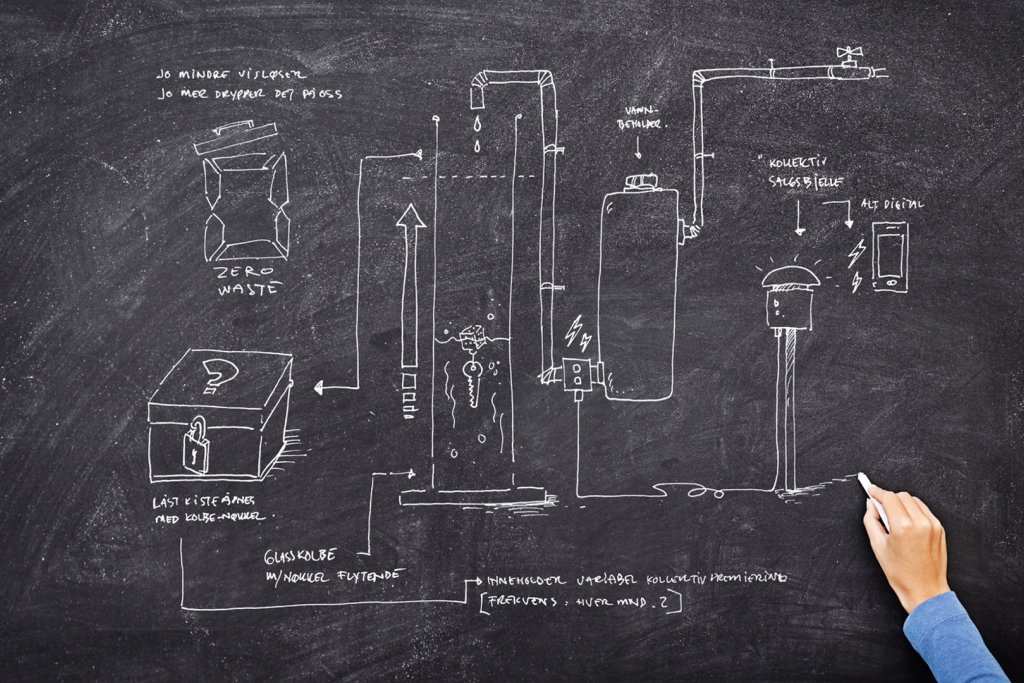 JO MINDRE VI SLØSER
JO MER DRYPPER DET PÅ OSS
ZERO
WASTE
?
LÅST KISTE ÅPNES
MED KOLBE-NØKKEL.
GLASSKOLBE
M/NØKKEL FLYTENDE
VANN-
BEHOLDER.
" KOLLEKTIV
SALGSBJELLE
ALT DIGITAL
INNEHOLDER VARIABEL KOLLEKTIV PREMIERING
[FREKVENS: HVER MND.?]